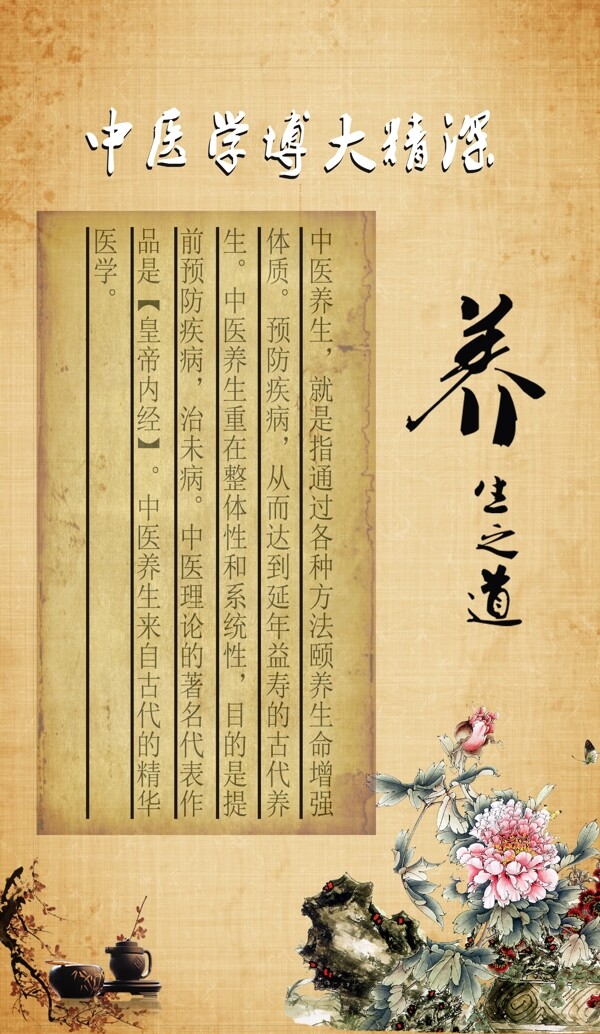 中医学博大精深
养
生之道
中医养生，就是指通过各种方法颐养生命增强
体质。预防疾病，从而达到延年益寿的古代养
生。中医养生重在整体性和系统性，目的是提
前预防疾病，治未病。中医理论的著名代表作
品是【皇帝内经】。中医养生来自古代的精华
医学。